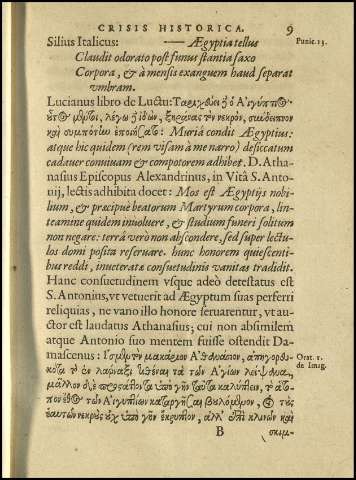 CRISIS HISTORICA. 9
Silius Italicus: — Ægyptia tellus
Claudit odorato post funus stantia saxo
Corpora, & à mensis exanguem haud separat
vmbram.
Punic. 13.
Lucianus libro de Luctu: Ταριχεύει ὁ Αἰγύπτιος·
οὗτος μέντοι, λέγω ἰδὼν, ξηράνας τὸν νεκρὸν, σύνδειπνον
καὶ συμπότιω ἐποιήσατο: Muriâ condit Ægyptius:
atque hic quidem (rem visam à me narro) desiccatum
cadauer conuiuam & compotorem adhibet. D. Atha-
nasius Episcopus Alexandrinus, in Vitâ S. Anto-
nij, lectis adhibita docet: Mos est Ægyptijs nobi-
lium, & præcipuè beatorum Martyrum corpora, lin-
teamine quidem inuoluere, & studium funeri solitum
non negare: terrâ verò non abscondere, sed super lectu-
los domi posita reseruare. hunc honorem quiescenti-
bus reddi, inueteratæ consuetudinis vanitas tradidit.
Hanc consuetudinem vsque adeò detestatus est
S. Antonius, vt vetuerit ad Ægyptum suas perferri
reliquias, ne vano illo honore seruarentur, vt au-
ctor est laudatus Athanasius; cui non absimilem
atque Antonio suo mentem fuisse ostendit Da-
mascenus: ἴσμεν μακάριον Ἀθανάσιον, ἀπηγορευ-
κότα τὸ ἐν λάρναξι τιθέναι τὰ τῶν Ἁγίων λείψανα,
Orat. 1.
de Imag.
μᾶλλον δὲ προστάττοντα ὑπὸ γῆν ταῦτα καλύπτειν, τὸ ἄτο-
πον ἔθος τῶν Αἰγυπτίων καταργῆσαι βουλόμενον, οἳ τοὺς
ἑαυτῶν νεκροὺς οὐχ ὑπὸ γῆν ἔκρυπτον, ἀλλ’ ἐπὶ κλινῶν καὶ
B σκιμ-